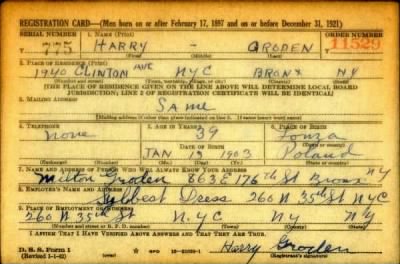 REGISTRATION CARD—(Men born on or after February 17, 1897 and on or before December 31, 1921)
SERIAL NUMBER 1. NAME (Print) ORDER NUMBER
T 775 HARRY - GRODEN 11529
(First) (Middle) (Last)
2. PLACE OF RESIDENCE (Print)
1940 CLINTON AVE NYC BRONX NY
(Number and street) (Town, township, village, or city) (County) (State)
[THE PLACE OF RESIDENCE GIVEN ON THE LINE ABOVE WILL DETERMINE LOCAL BOARD
JURISDICTION; LINE 2 OF REGISTRATION CERTIFICATE WILL BE IDENTICAL]
3. MAILING ADDRESS
SAME
[Mailing address if other than place indicated on line 2. If same insert word same]
4. TELEPHONE 5. AGE IN YEARS 6. PLACE OF BIRTH
None 39
DATE OF BIRTH
JAN 1903 Poland
7. NAME AND ADDRESS OF PERSON WHO WILL ALWAYS KNOW YOUR ADDRESS
Milton Groden 863 E 176th St Bronx NY
8. EMPLOYER'S NAME AND ADDRESS
Sylbest Dress 260 W 35th St NYC
9. PLACE OF EMPLOYMENT OR BUSINESS
260 W 35th St N.Y.C NY NY
(Number and street or R. F. D. number) (Town) (County) (State)
I AFFIRM THAT I HAVE VERIFIED ABOVE ANSWERS AND THAT THEY ARE TRUE.
D. S. S. Form 1 GPO Harry Groden
(Revised 1-1-42) (Registrant's signature)